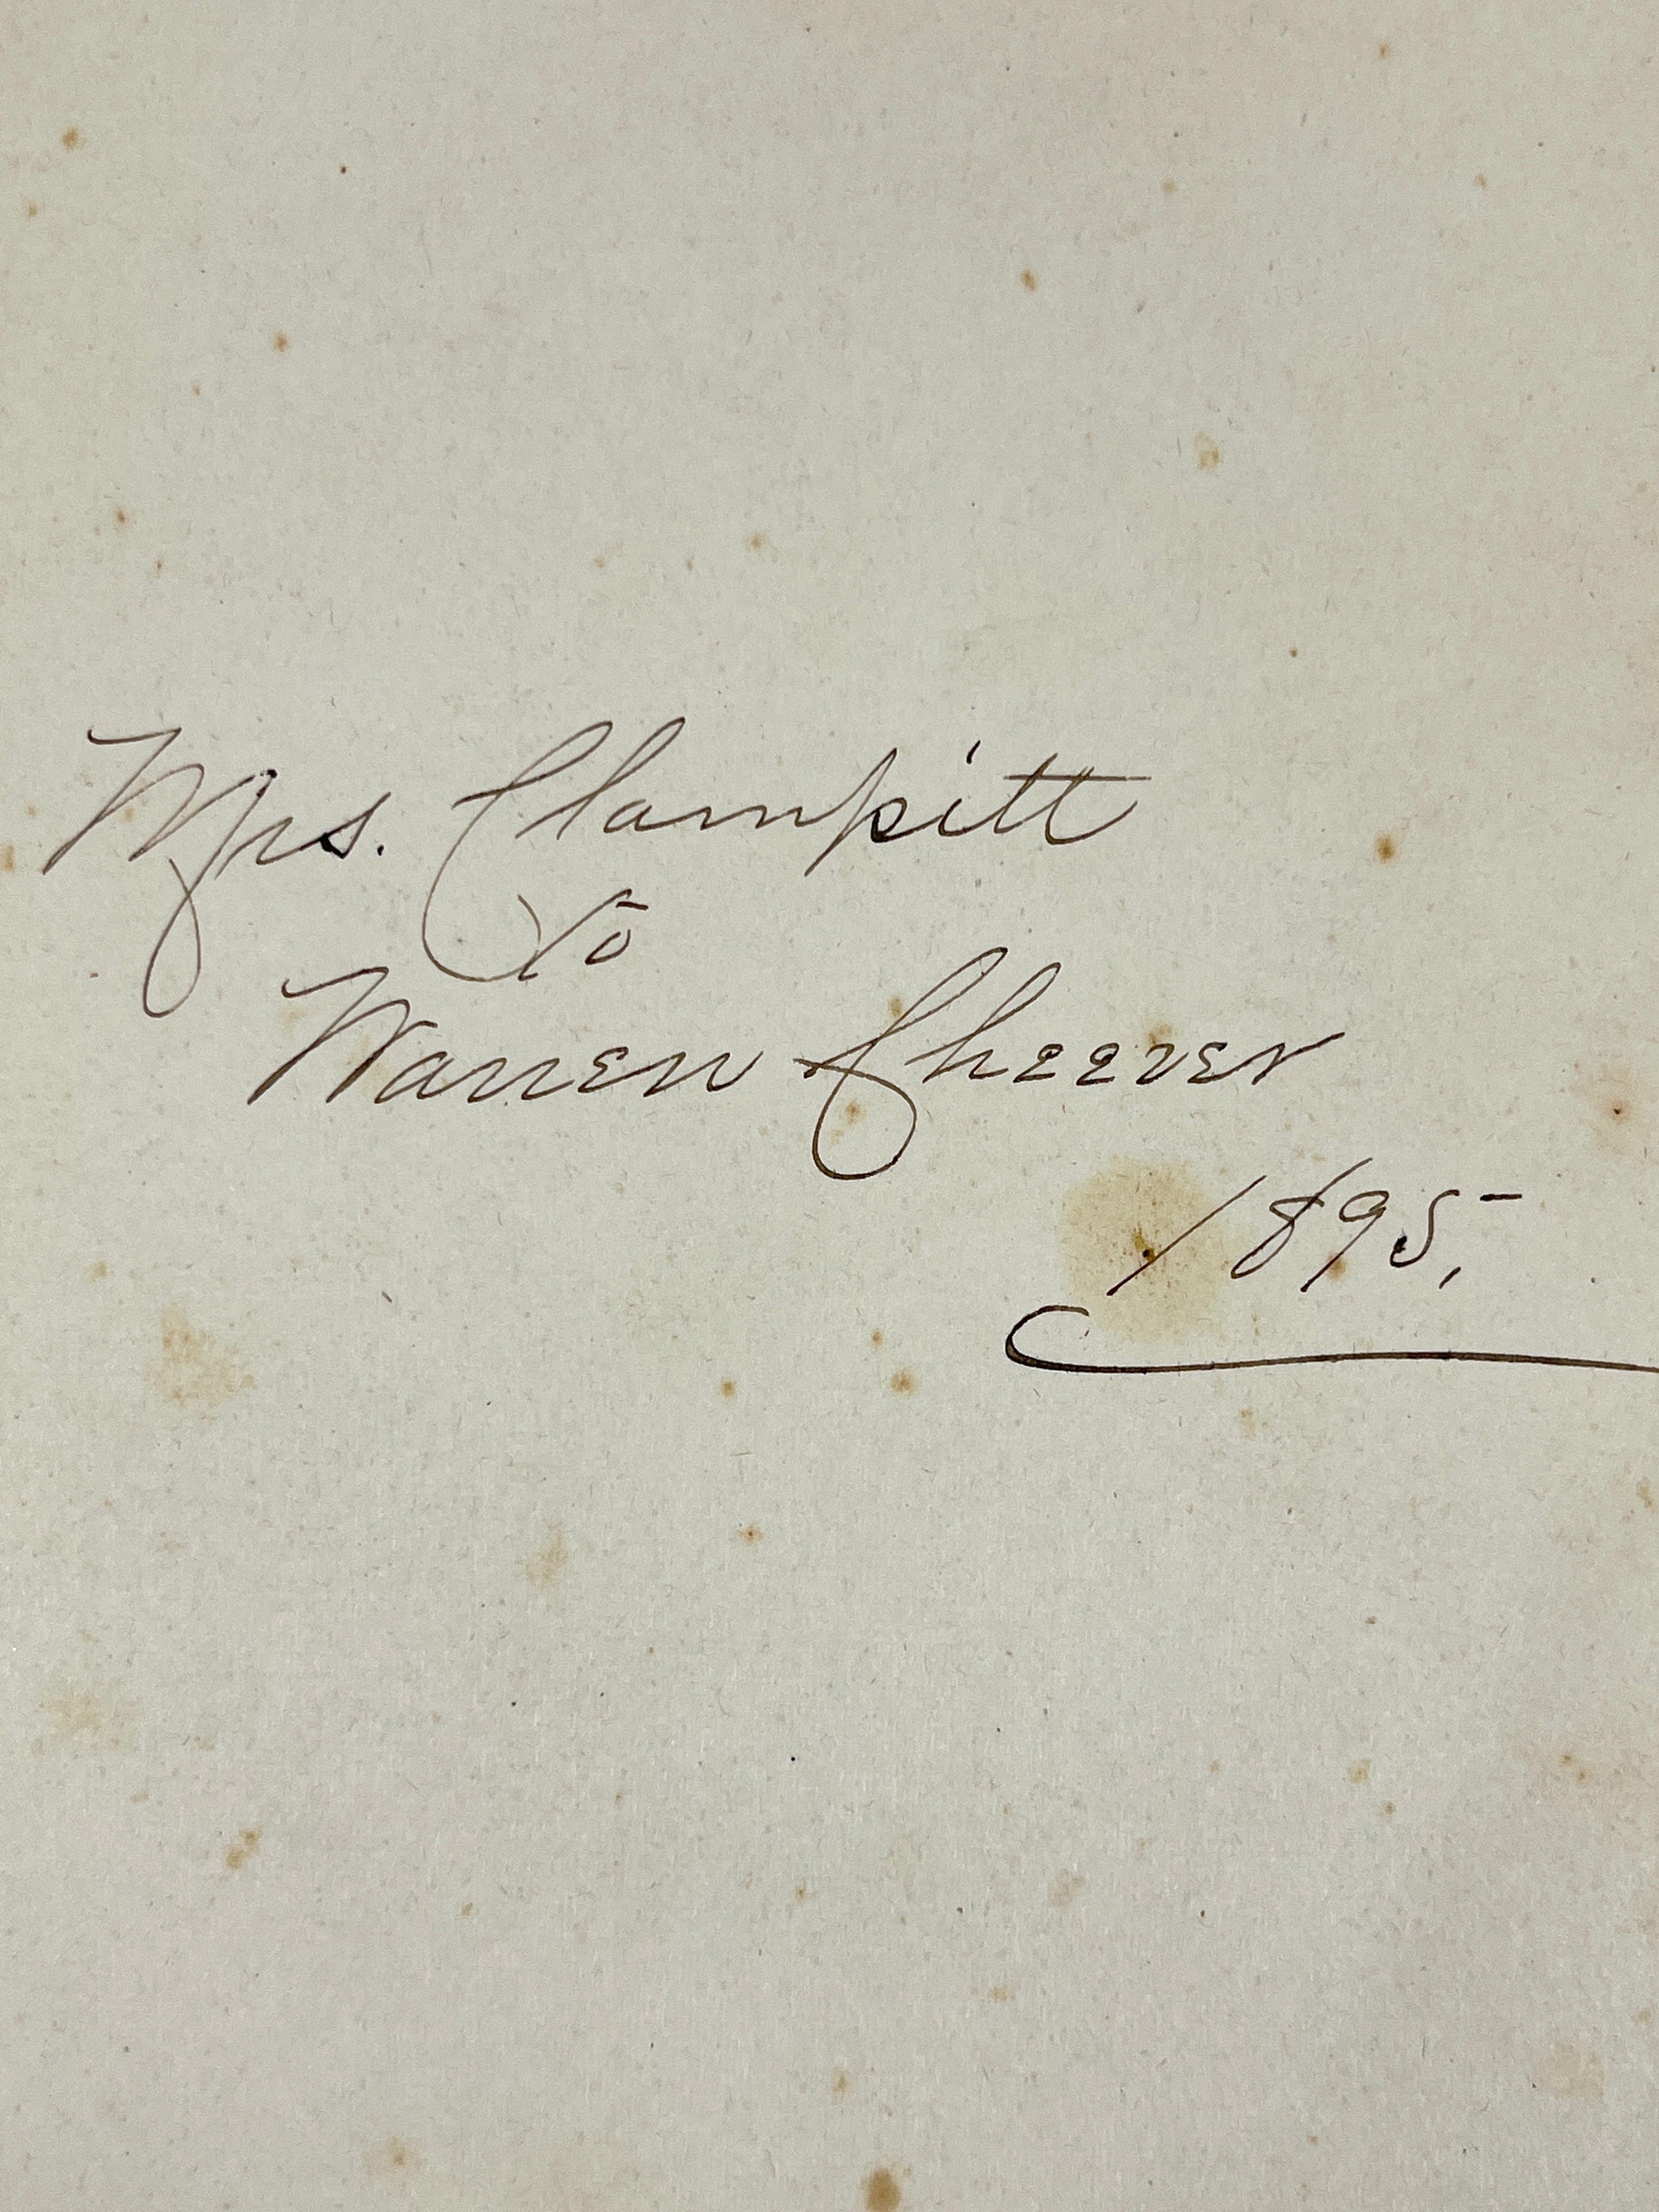 Mrs. Clampitt
To
Warren Cheever
1895,